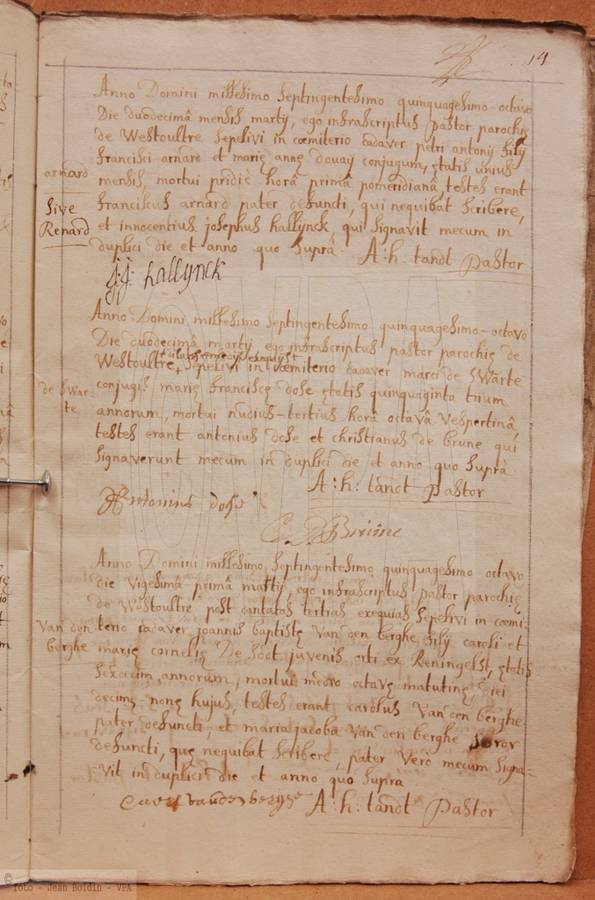 14
Anno Domini millesimo Septingentesimo quinquagesimo-octavo
Die duodecimâ mensis martij, ego infrascriptus pastor parochię
de Westoultre Sepelivi in cœmiterio cadaver petri antonij filij
francisci arnard et marię annę douay conjugum, ętatis unius
arnard
mensis, mortui pridie horâ primâ pomeridianâ testes erant
Sive
franciscus arnard pater defuncti, qui nequibat Scribere,
Renard
et innocentius josephus hallynck, qui Signavit mecum in
duplici die et anno quo Suprâ A:h: tandt Pastor
jj hallynck
Anno Domini millesimo Septingentesimo quinquagesimo-octavo
Die duodecimâ martij, ego infrascriptus pastor parochię de
Westoultre, Sepelivi in cœmiterio cadaver marci de Swarte
de Swar-
te
conjugis marię franciscę dose ętatis quinquaginta trium
annorum, mortui nudius-tertius horâ octavâ Vespertinâ,
testes erant antonius dose et christianus de brune qui
Signaverunt mecum in duplici die et anno quo Suprà
A:h: tandt Pastor
Antonius dose
C D Brune
Anno Domini millesimo Septingentesimo quinquagesimo octavo
die vigesimâ primâ martij, ego infrascriptus pastor parochię
de Westoultre post cantatas tertias exequias Sepelivi in cœmi-
Van den
terio cadaver joannis baptistę Van den berghe filij caroli et
berghe
marię cornelię De Soot juvenis, orti ex Reningelst, ętatis
Sexdecim annorum, mortui medio octavę matutinę diei
decimę nonę hujus, testes erant carolus Van den berghe
pater defuncti, et maria jacoba Van den berghe Soror
defuncti, quę nequibat Scribere, pater Verò mecum Signa-
vit in duplici die et anno quo Suprà
Carel vandenberghe A:h: tandt Pastor
© foto - Jean Boidin - VVA